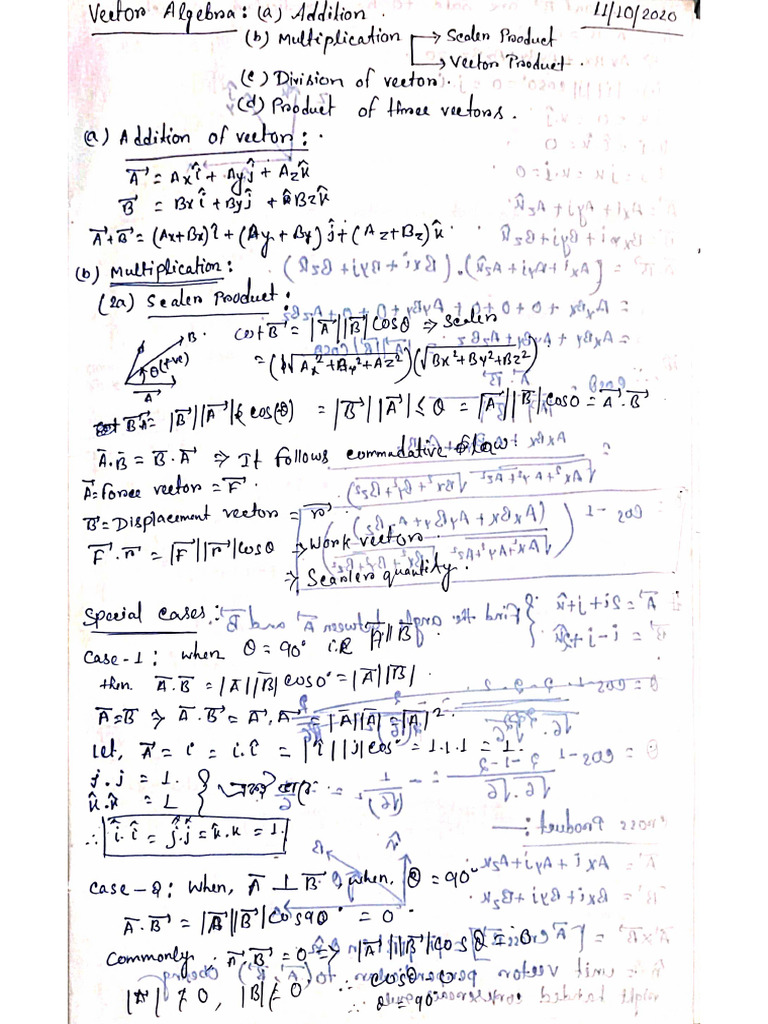 Vector Algebra: (a) Addition. 11/10/2020
(b) Multiplication → Scaler Product
→ Vector Product.
(c) Division of vector.
(d) Product of three vectors.
(a) Addition of vector:
A⃗ = Axî + Ayĵ + Azk̂
B⃗ = Bxî + Byĵ + Bzk̂
A⃗+B⃗ = (Ax+Bx)î + (Ay+By)ĵ + (Az+Bz)k̂
(b) Multiplication:
(2a) Scaler Product:
B. = |A⃗||B⃗|cosθ ⇒ Scaler
θ(+ve) = (√Ax²+Ay²+Az²)(√Bx²+By²+Bz²)
A⃗
= |B⃗||A⃗| cos(θ) = |B⃗||A⃗| θ = |A⃗||B⃗|cosθ = A⃗.B⃗
A⃗.B⃗ = B⃗.A⃗ ⇒ It follows commadative law
A⃗=force vector = F⃗.
B⃗=Displacement vector = r⃗
F⃗.r⃗ = |F⃗||r⃗|cosθ → Work vector.
⇒ Scanlers quantity.
Special cases:
Case-1: when θ=90° i.e A⃗||B⃗
then A⃗.B⃗ = |A⃗||B⃗|cos0° = |A⃗||B⃗|.
A⃗=B⃗ ⇒ A⃗.B⃗ = A⃗.A⃗ = |A⃗||A⃗| = |A⃗|².
Let, A⃗ = i = i.i = |i||j|cos° = 1.1.1 = 1.
j.j = 1.
k̂.k̂ = 1
∴ î.î = ĵ.ĵ = k̂.k = 1.
Case-2: When, A⃗ ⊥ B⃗, when, θ = 90°
A⃗.B⃗ = |A⃗||B⃗|cos90° = 0
Commonly. A⃗.B⃗ = 0 ⇒ |A⃗||B⃗|cosθ
|A⃗| ≠ 0, |B⃗| ≠ 0 ∴ cosθ = 0
=90°